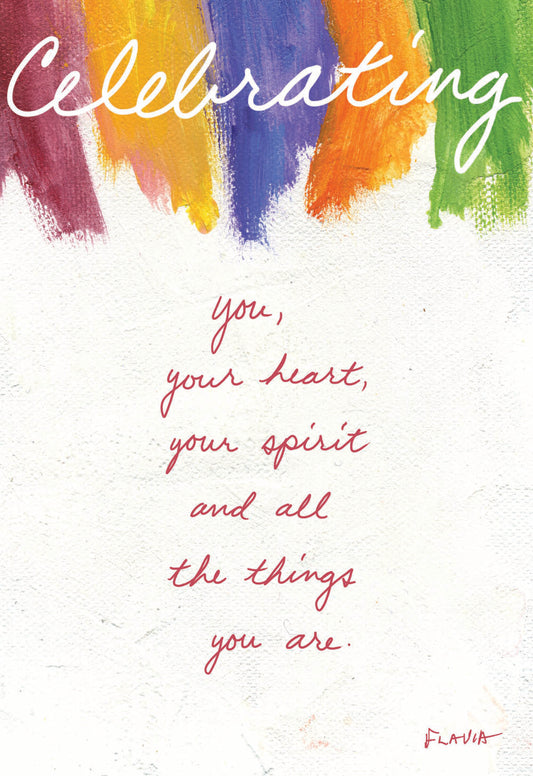 Celebrating
you,
your heart,
your spirit
and all
the things
you are.
FLAVIA